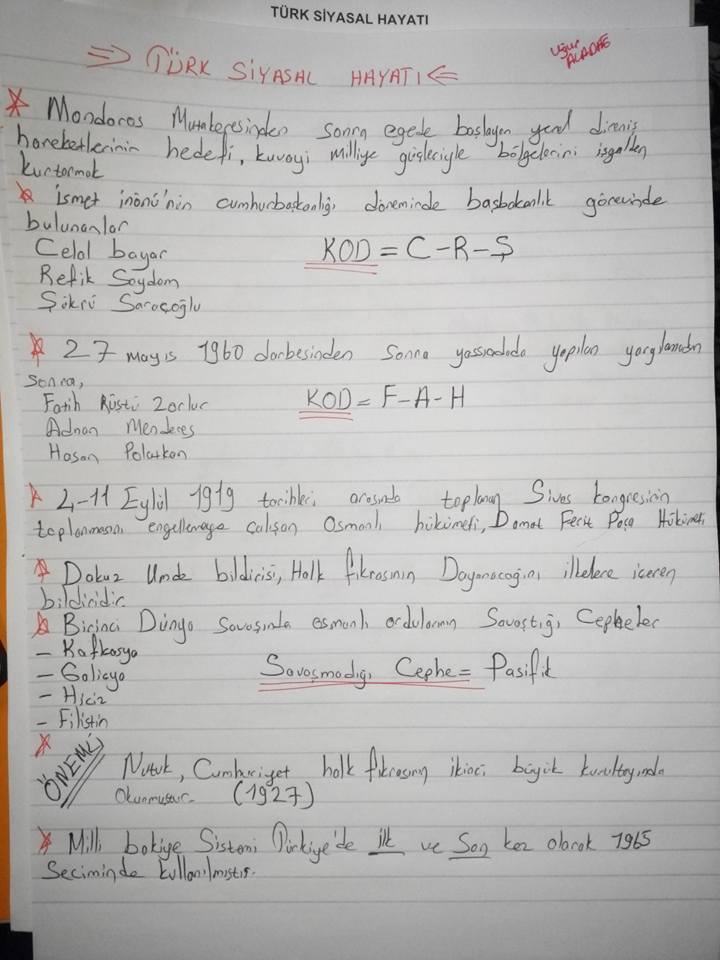 TÜRK SİYASAL HAYATI
Uğur
ALADAĞ
⇒ TÜRK SİYASAL HAYATI ⇐
* Mondoros Mutakeresinden sonra egede başlayan yerel direniş
hareketlerinin hedefi, kuvayi milliye güçleriyle bölgelerini işgalden
kurtarmak
* İsmet inönü'nin cumhurbaşkanlığı döneminde başbakanlık görevinde
bulunanlar
Celal bayar KOD = C-R-Ş
Refik Saydam
Şükrü Saraçoğlu
* 27 mayıs 1960 darbesinden sonra yassıadada yapılan yargılamadan
sonra,
Fatih Rüştü Zorlu KOD = F-A-H
Adnan Menderes
Hasan Polatkan
* 4-11 Eylül 1919 tarihleri arasında toplanan Sivas kongresinin
toplanmasını engellemeye çalışan Osmanlı hükümeti, Damat Ferit Paşa Hükümeti
* Dokuz Umde bildirisi, Halk fıkrasının Dayanacağını ilkelere içeren
bildiridir.
* Birinci Dünya savaşında osmanlı ordularının Savaştığı Cepheler
- Kafkasya
- Galiçya Savaşmadığı Cephe = Pasifik
- Hicaz
- Filistin
*
ÖNEMLİ Nutuk, Cumhuriyet halk fıkrasının ikinci büyük kurultayında
Okunmuştur. (1927)
* Milli bakiye Sistemi Türkiye'de ilk ve Son kez olarak 1965
Seciminde kullanılmıştır.